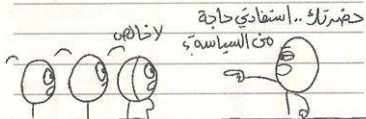 حضرتك.. استفادتي حاجة
من السياسة؟
لا خالص